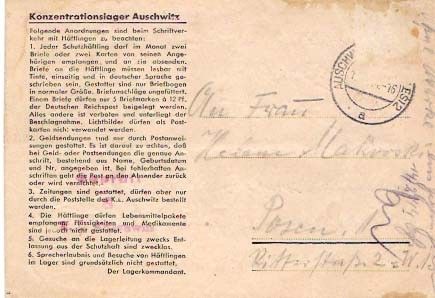 Konzentrationslager Auschwitz
Folgende Anordnungen sind beim Schriftver-
kehr mit Häftlingen zu beachten:
1. Jeder Schutzhäftling darf im Monat zwei
Briefe oder zwei Karten von seinen Angehö-
rigen empfangen und an sie absenden.
Briefe an die Häftlinge müssen lesbar mit
Tinte, einseitig und in deutscher Sprache ge-
schrieben sein. Gestattet sind nur Briefbogen
in normaler Größe. Briefumschläge ungefüttert.
Einem Briefe dürfen nur 5 Briefmarken à 12 Pf.
der Deutschen Reichspost beigelegt werden.
Alles andere ist verboten und unterliegt der
Beschlagnahme. Lichtbilder dürfen als Post-
karten nicht verwendet werden.
2. Geldsendungen sind nur durch Postanwei-
sungen gestattet. Es ist darauf zu achten, daß
bei Geld- oder Postsendungen die genaue An-
schrift, bestehend aus Name, Geburtsdaten
und Nr., angegeben ist. Bei fehlerhaften An-
schriften geht die Post an den Absender zurück
oder wird vernichtet.
3. Zeitungen sind gestattet, dürfen aber nur
durch die Poststelle des K.L. Auschwitz bestellt
werden.
4. Die Häftlinge dürfen Lebensmittelpakete
empfangen, Flüssigkeiten und Medikamente
sind jedoch nicht gestattet.
5. Gesuche an die Lagerleitung zwecks Entlas-
sung aus der Schutzhaft sind zwecklos.
6. Sprecherlaubnis und Besuche von Häftlingen
im Lager sind grundsätzlich nicht gestattet.
Der Lagerkommandant.
AUSCHW
a
An Frau
Posen